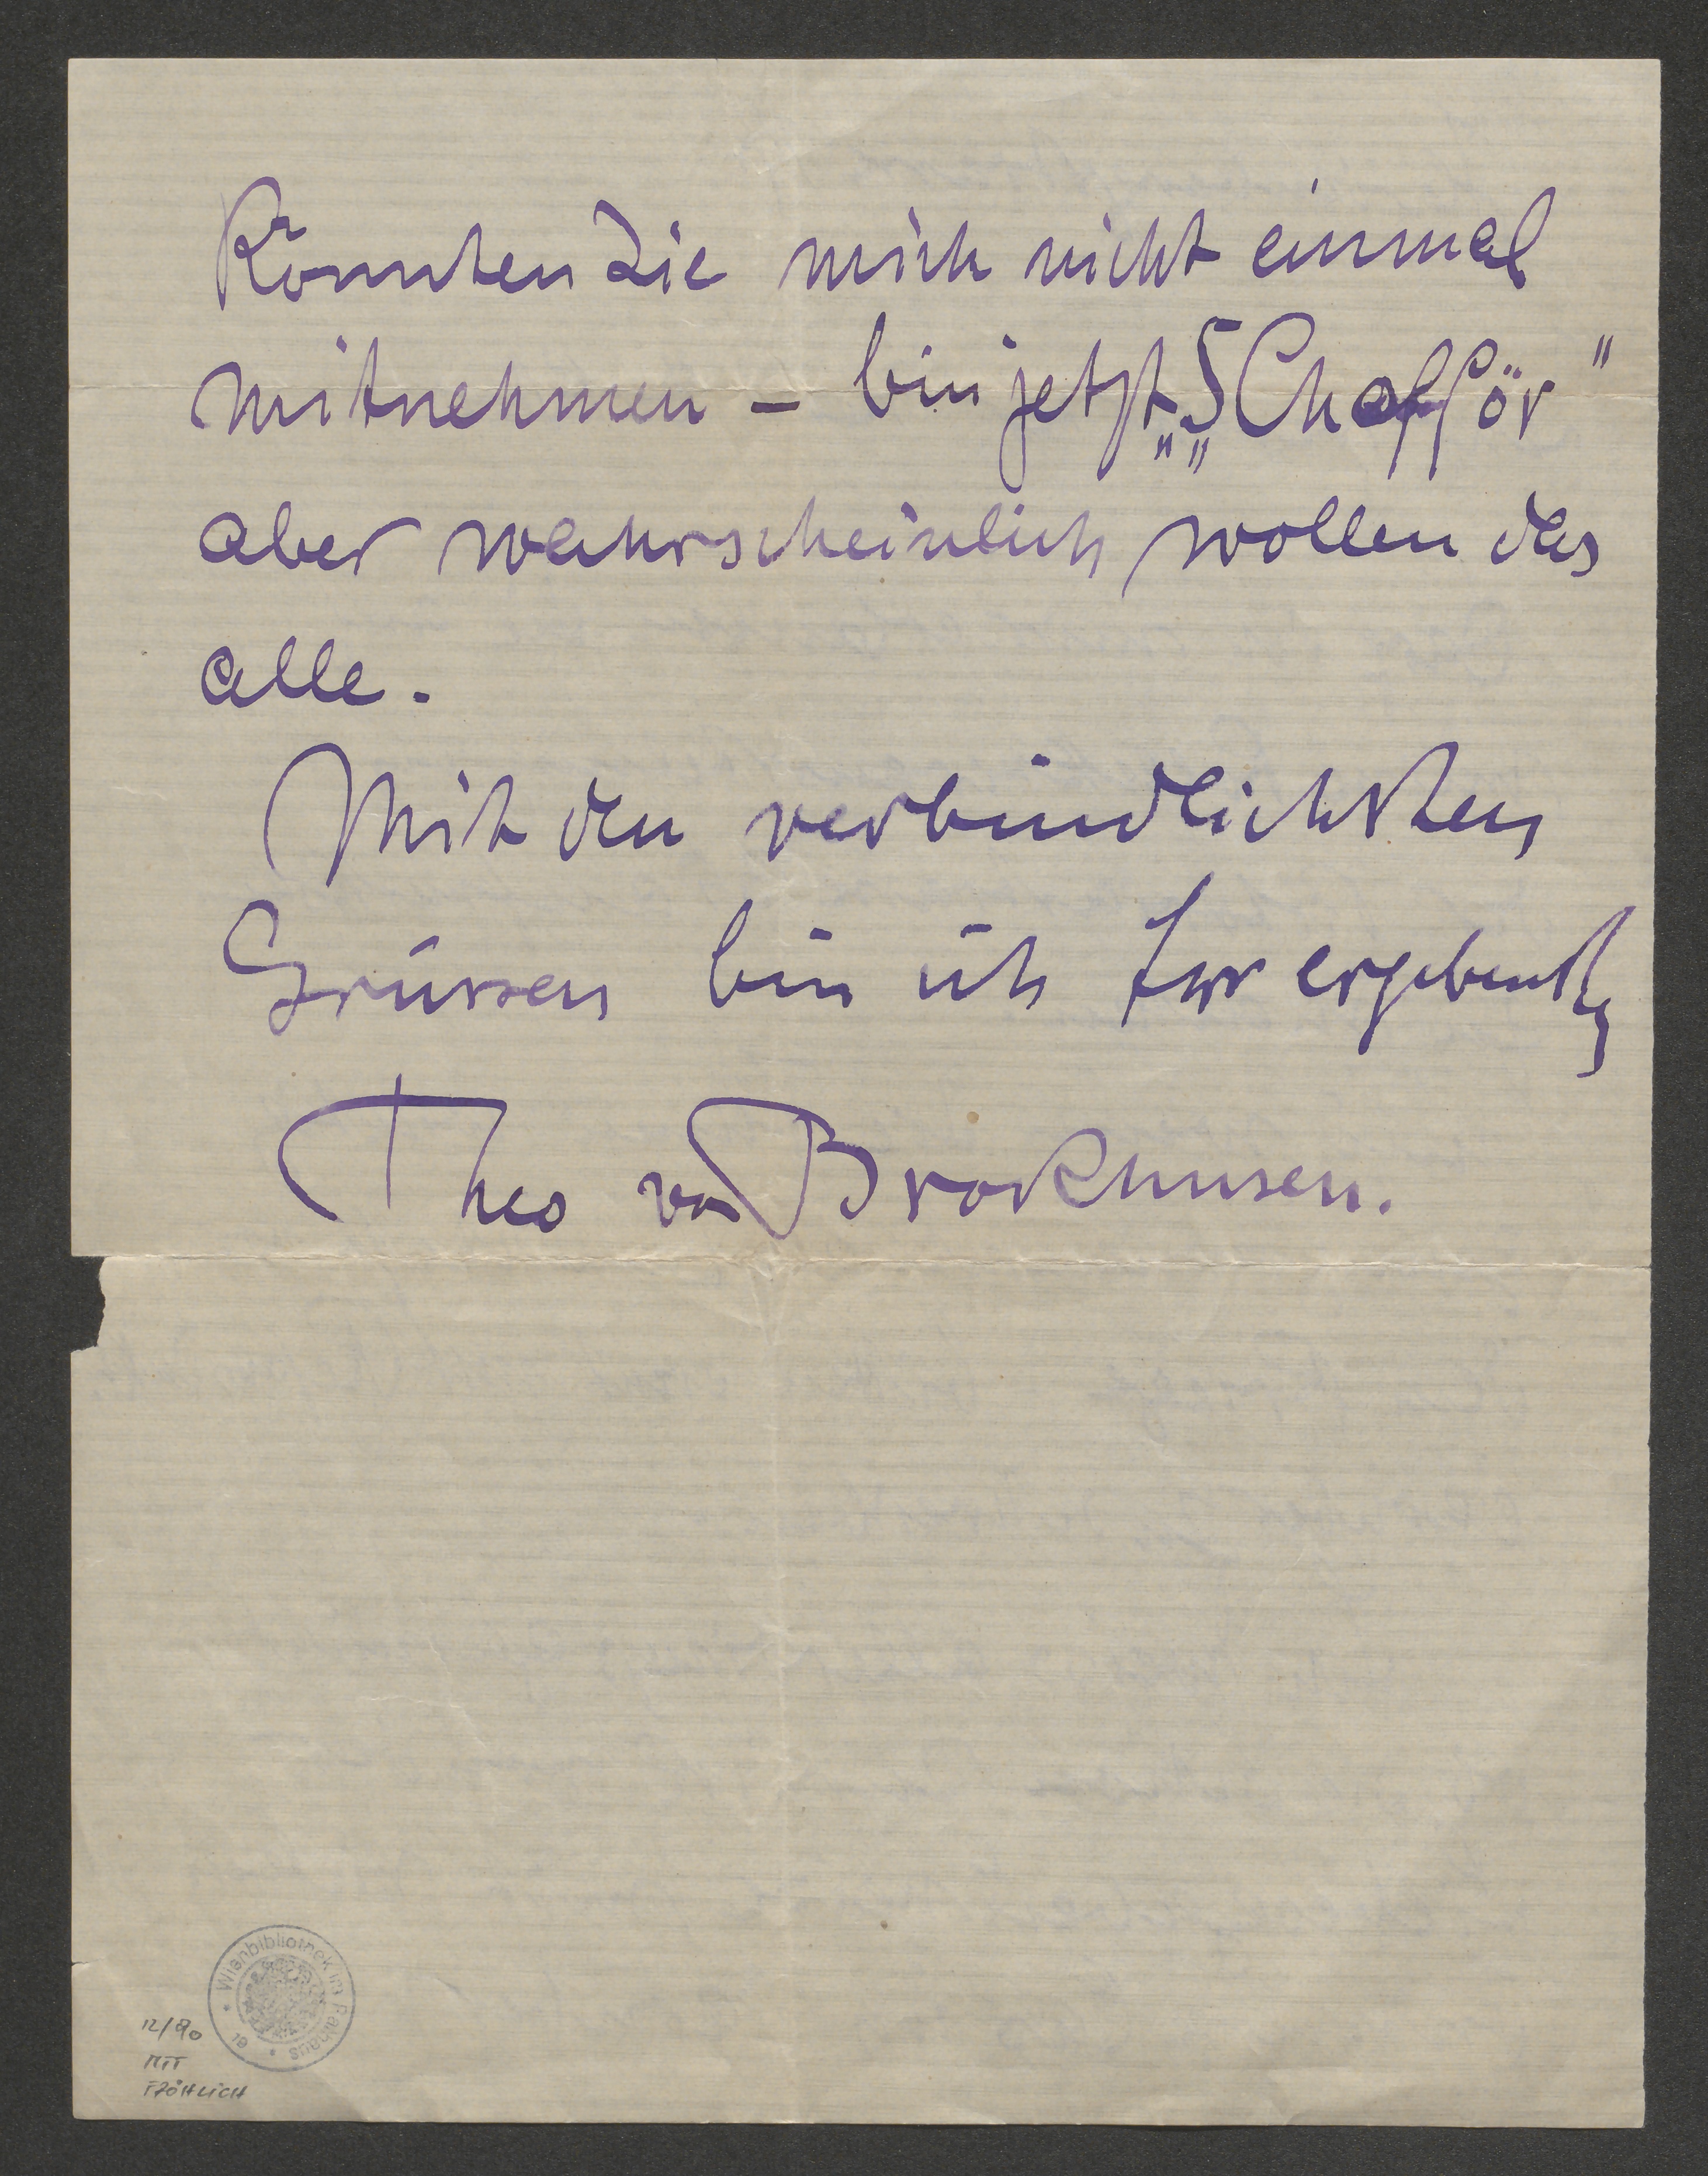 Könnten Sie mich nicht einmal
mitnehmen – bin jetzt „SChafför"
aber wahrscheinlich wollen das
alle.
Mit den verbindlichsten
Grüssen bin ich Ihr ergebenster
Theo von Brockhusen.
Wienbibliothek im Rathaus
12/90
MIT
FRÖHLICH